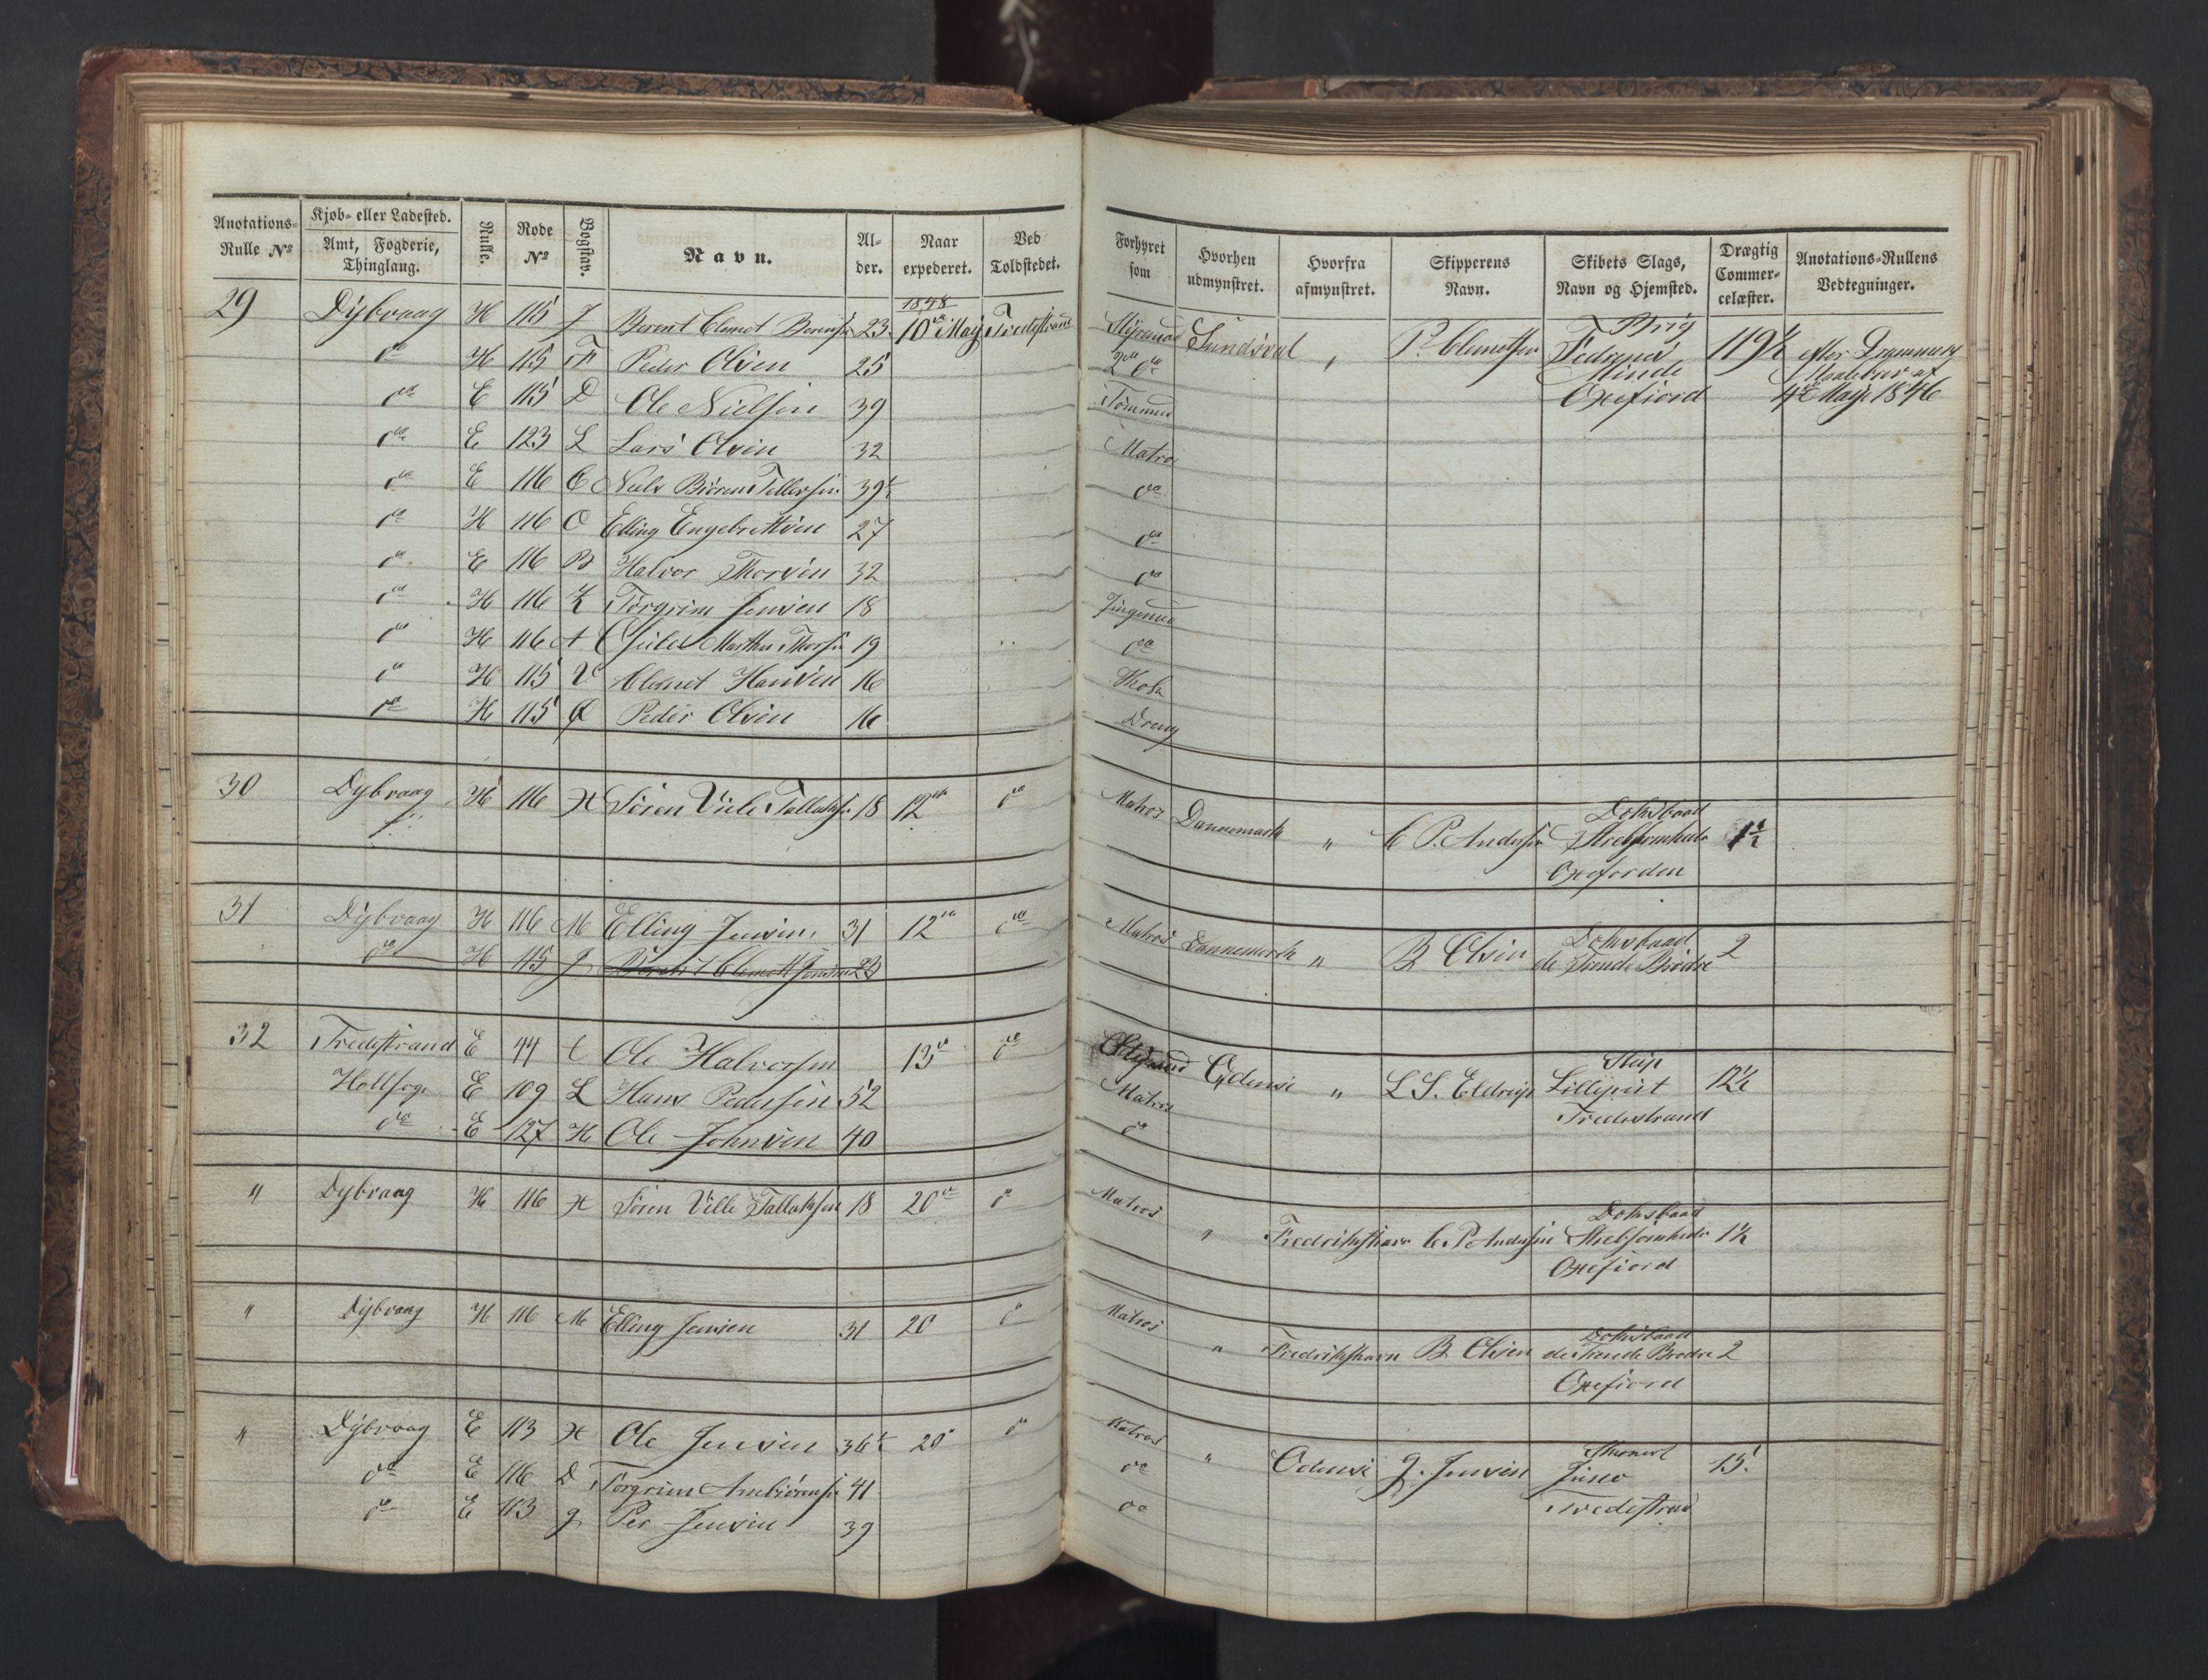 Anotations-Rulle № | Kjøb- eller Ladested. Amt, Fogderie, Thinglaug. | Rulle. | Rode № | Bogstav. | Navn. | Alder. | Naar expederet. | Ved Toldstedet. | Forhyret som | Hvorhen udmynstret. | Hvorfra afmynstret. | Skipperens Navn. | Skibets Slags, Navn og Hjemsted. | Drægtig Commercelæster. | Anotations-Rullens Vedtegninger.
29 | Dybvaag | H | 115 | J | Berent Clemet | 23 | 1848 10de May | Tvedestrand | Styrmand | Sundsval | " | P. Clemetsen | Brig Fædrenes Minde Oxefiord | 119½ | efter Drammens Maalebrev af 4de May 1846
do | H | 115 | F | Peder Olsen | 25 | 2den do
do | E | 115 | D | Ole Nielsen | 39 | Tømmermd
do | E | 123 | L | Lars Olsen | 32 | Matros
do | E | 116 | C | Niels Biøren Tellefsen | 39½ | do
do | H | 116 | O | Elling Engebretsen | 27 | do
do | E | 116 | B | Halvor Thorsen | 32 | do
do | H | 116 | K | Torgrim Jensen | 18 | Jungmd
do | H | 116 | A | Mathias Thorsen | 19 | do
do | H | 115 | V | Clemet Hansen | 16 | Kok
do | H | 115 | Ø | Peder Olsen | 16 | Dreng
30 | Dybvaag | H | 116 | H | Søren Ville Tallaksen | 18 | 12te | do | Matros | Dannemark | " | C. P. Andersen | Dæksbaad Stræbsomheden Oxefiorden | 1½
31 | Dybvaag | H | 116 | M | Elling Jensen | 31 | 12te | do | Matros | Dannemark | " | B. Olsen | Dæksbaad de Trende Brødre | 2
do | H | 115 | J | Berent Clemet | 23
32 | Tvedestrand | E | 44 | C | Ole Halvorsen | 13de | do | Styrmd | Odense | " | L. S. Eldrup | Slup Lilleput Tvedestrand | 12½
Holtsogn | E | 109 | L | Hans Pedersen | 52 | Matros
do | E | 127 | H | Ole Johnsen | 40 | do
" | Dybvaag | H | 116 | H | Søren Ville Tallaksen | 18 | 20de | do | Matros | " | Fredrikshavn | C. P. Andersen | Dæksbaad Stræbsomheden Oxefiord | 1½
" | Dybvaag | H | 116 | M | Elling Jensen | 31 | 20 | do | Matros | " | Fredrikshavn | B. Olsen | Dæksbaad de Trende Brødre Oxefiord | 2
" | Dybvaag | E | 113 | H | Ole Jensen | 36½ | 20 | do | Matros | " | Odense | J. Jensen | Skonnert Juno Tvedestrand | 15
do | E | 116 | D | Torgrim Anbiørnsen | 41 | do
do | E | 113 | g | Per Jensen | 39 | do